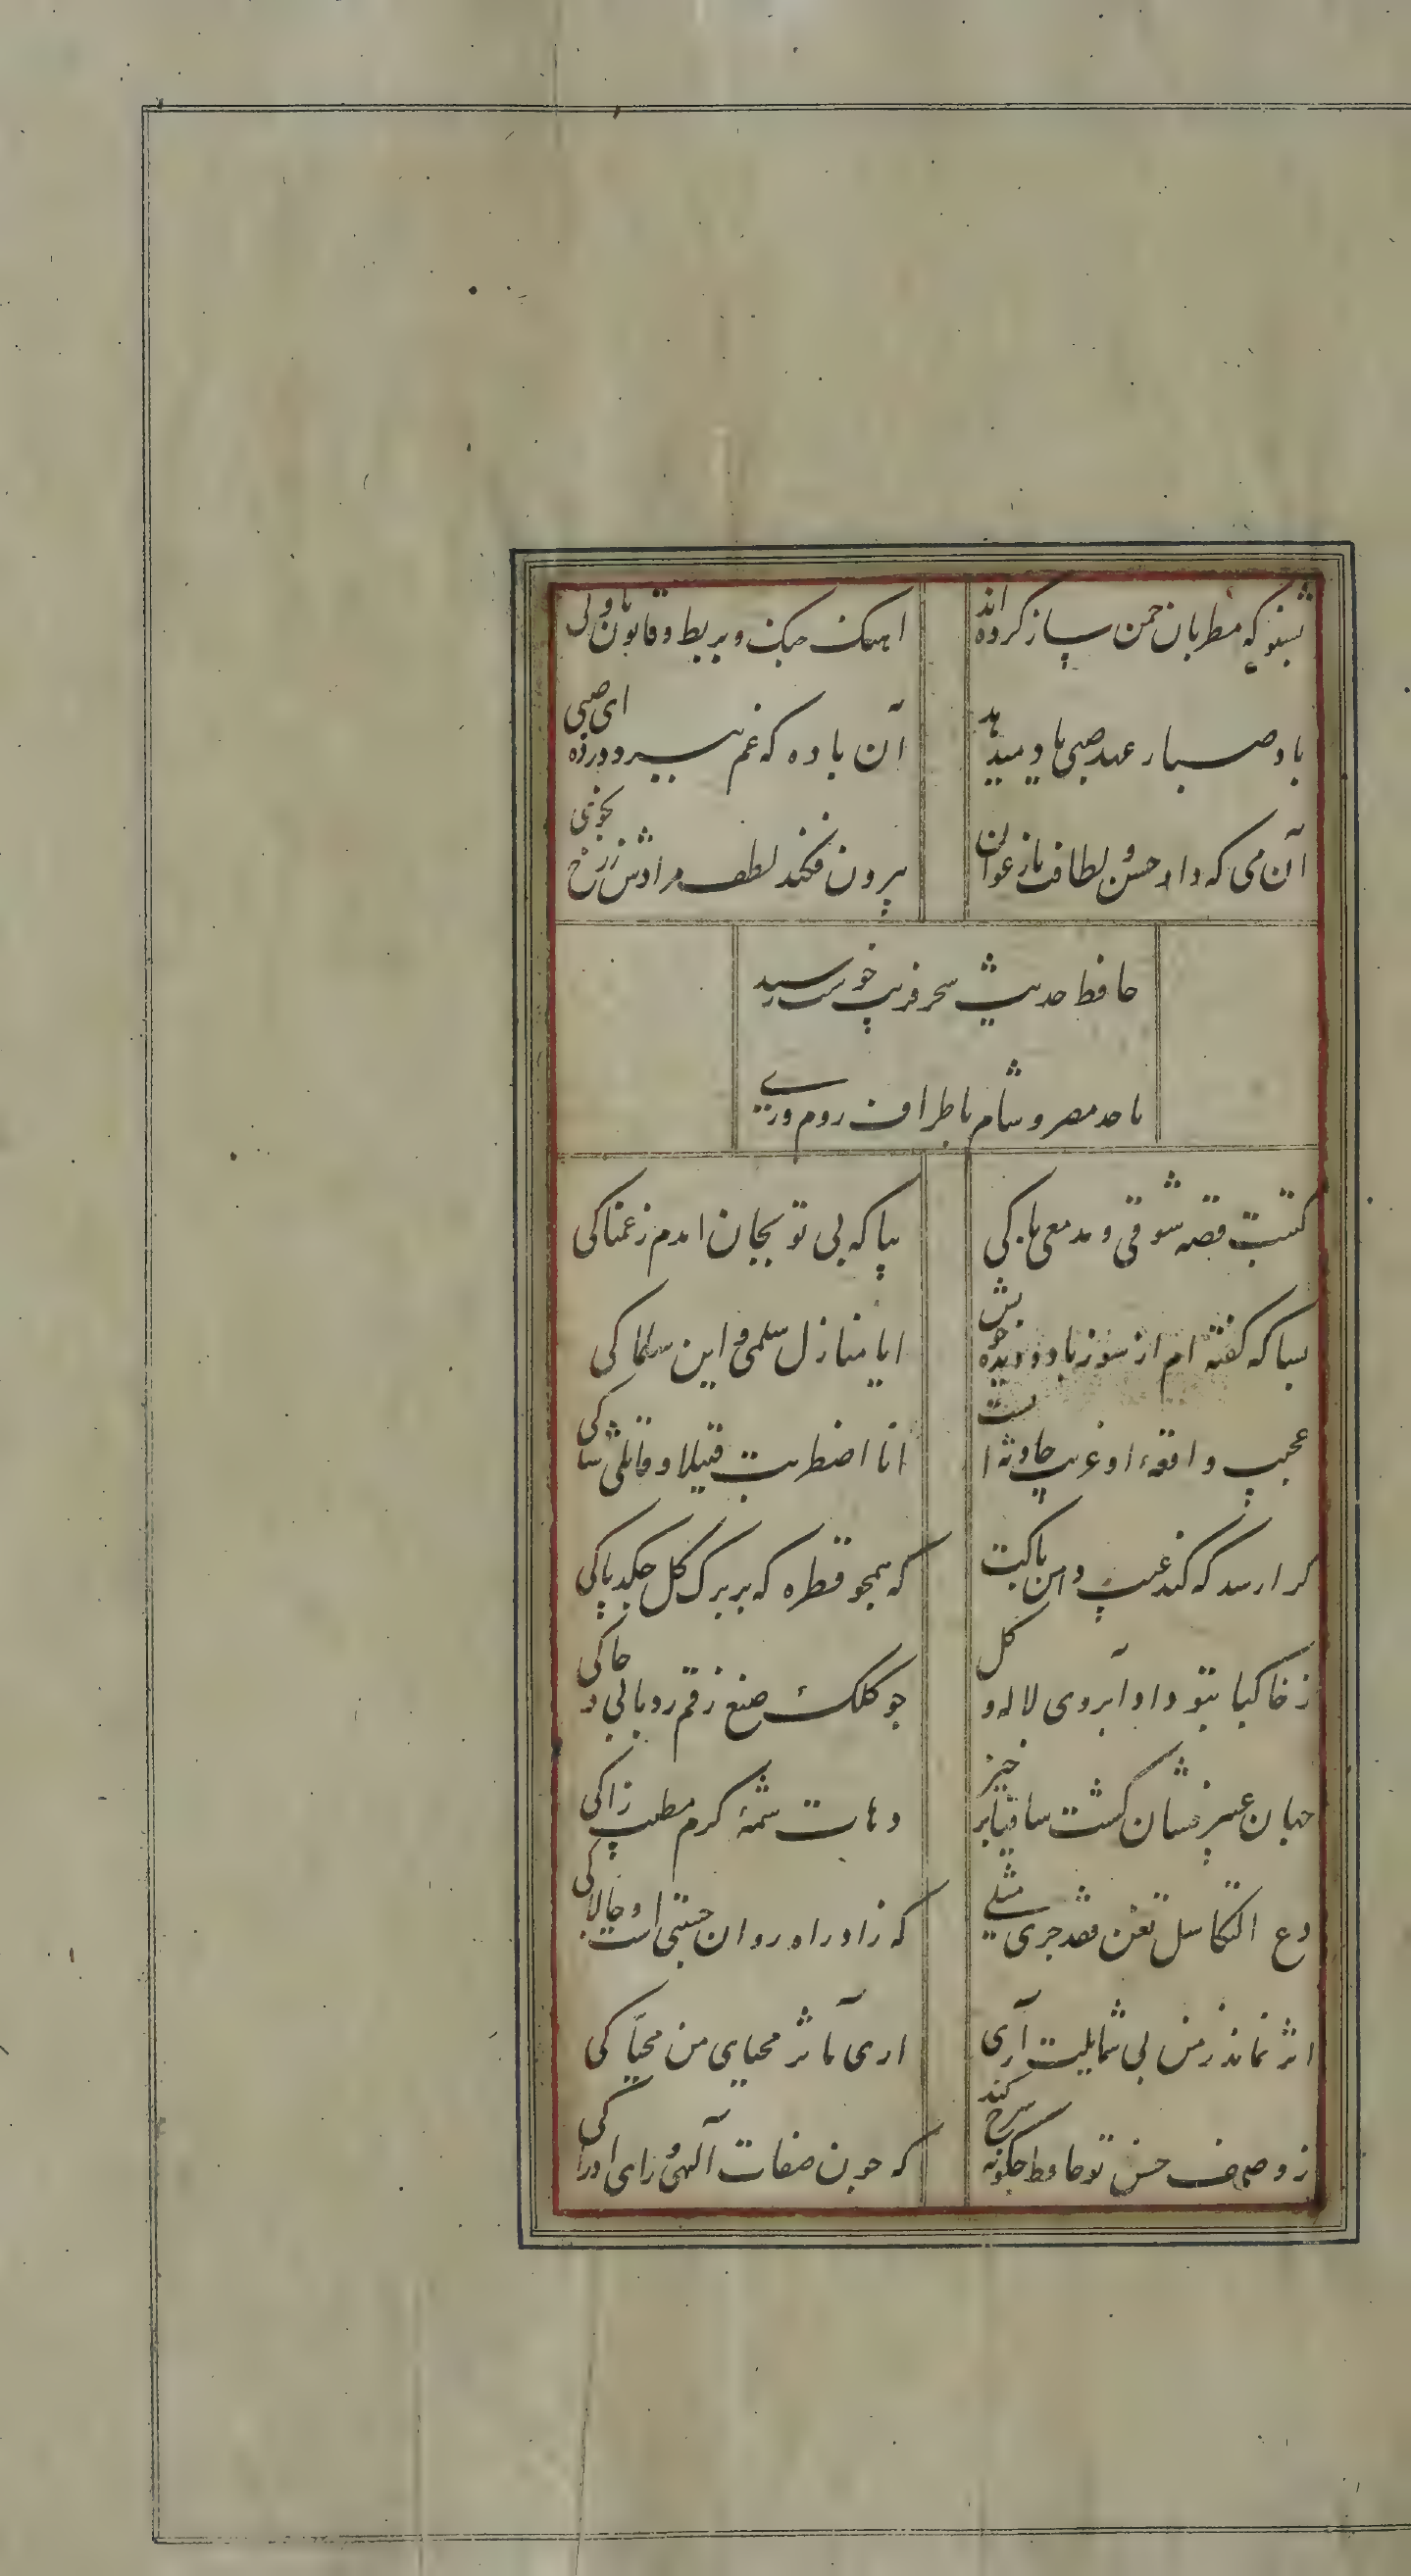 بشنو که مطربان چمن ساز کرده اند
اهنک چنک و بربط و قانون و نای و نی
باد صبا ز عهد صبی یاد میدهد
آن باده که غم ببرد در ده ای صبی
آن می که داد حسن و لطافت بارغوان
بیرون فکند لطف مزاج از رخش بخوی
حافظ حدیث سحر فریب خوشت رسید
تا حد مصر و شام باطراف روم وری
کتبت قصه شوقی و مدمعی باکی
بیا که بی تو بجان امدم ز غمناکی
بسا که کفته ام از سوز باد و دیده خویش
ایا منازل سلمی و این سلماکی
عجیب واقعه و غریب حادثه است
انا اضطربت قتیلا و قاتلی شاکی
کرا رسد که کند عیب دامن پاکت
که همچو قطره که بر برک کل چکد پاکی
ز خاکپای تو داد آبروی لاله و کل
چو کلک صنع رقم زد بابی و خاکی
صبا عبیر فشان کشت ساقیا برخیز
و هات شمه کرم مطیب زاکی
دع التکاسل تغنم فقد جری مثلی
که زاد راه روان چستی است و چالاکی
اثر نماند ز من بی شمایلت آری
اری مآثر محیای من محیاکی
ز وصف حسن تو حافظ چکونه شرح کند
که چون صفات آلهی ورای ادراکی